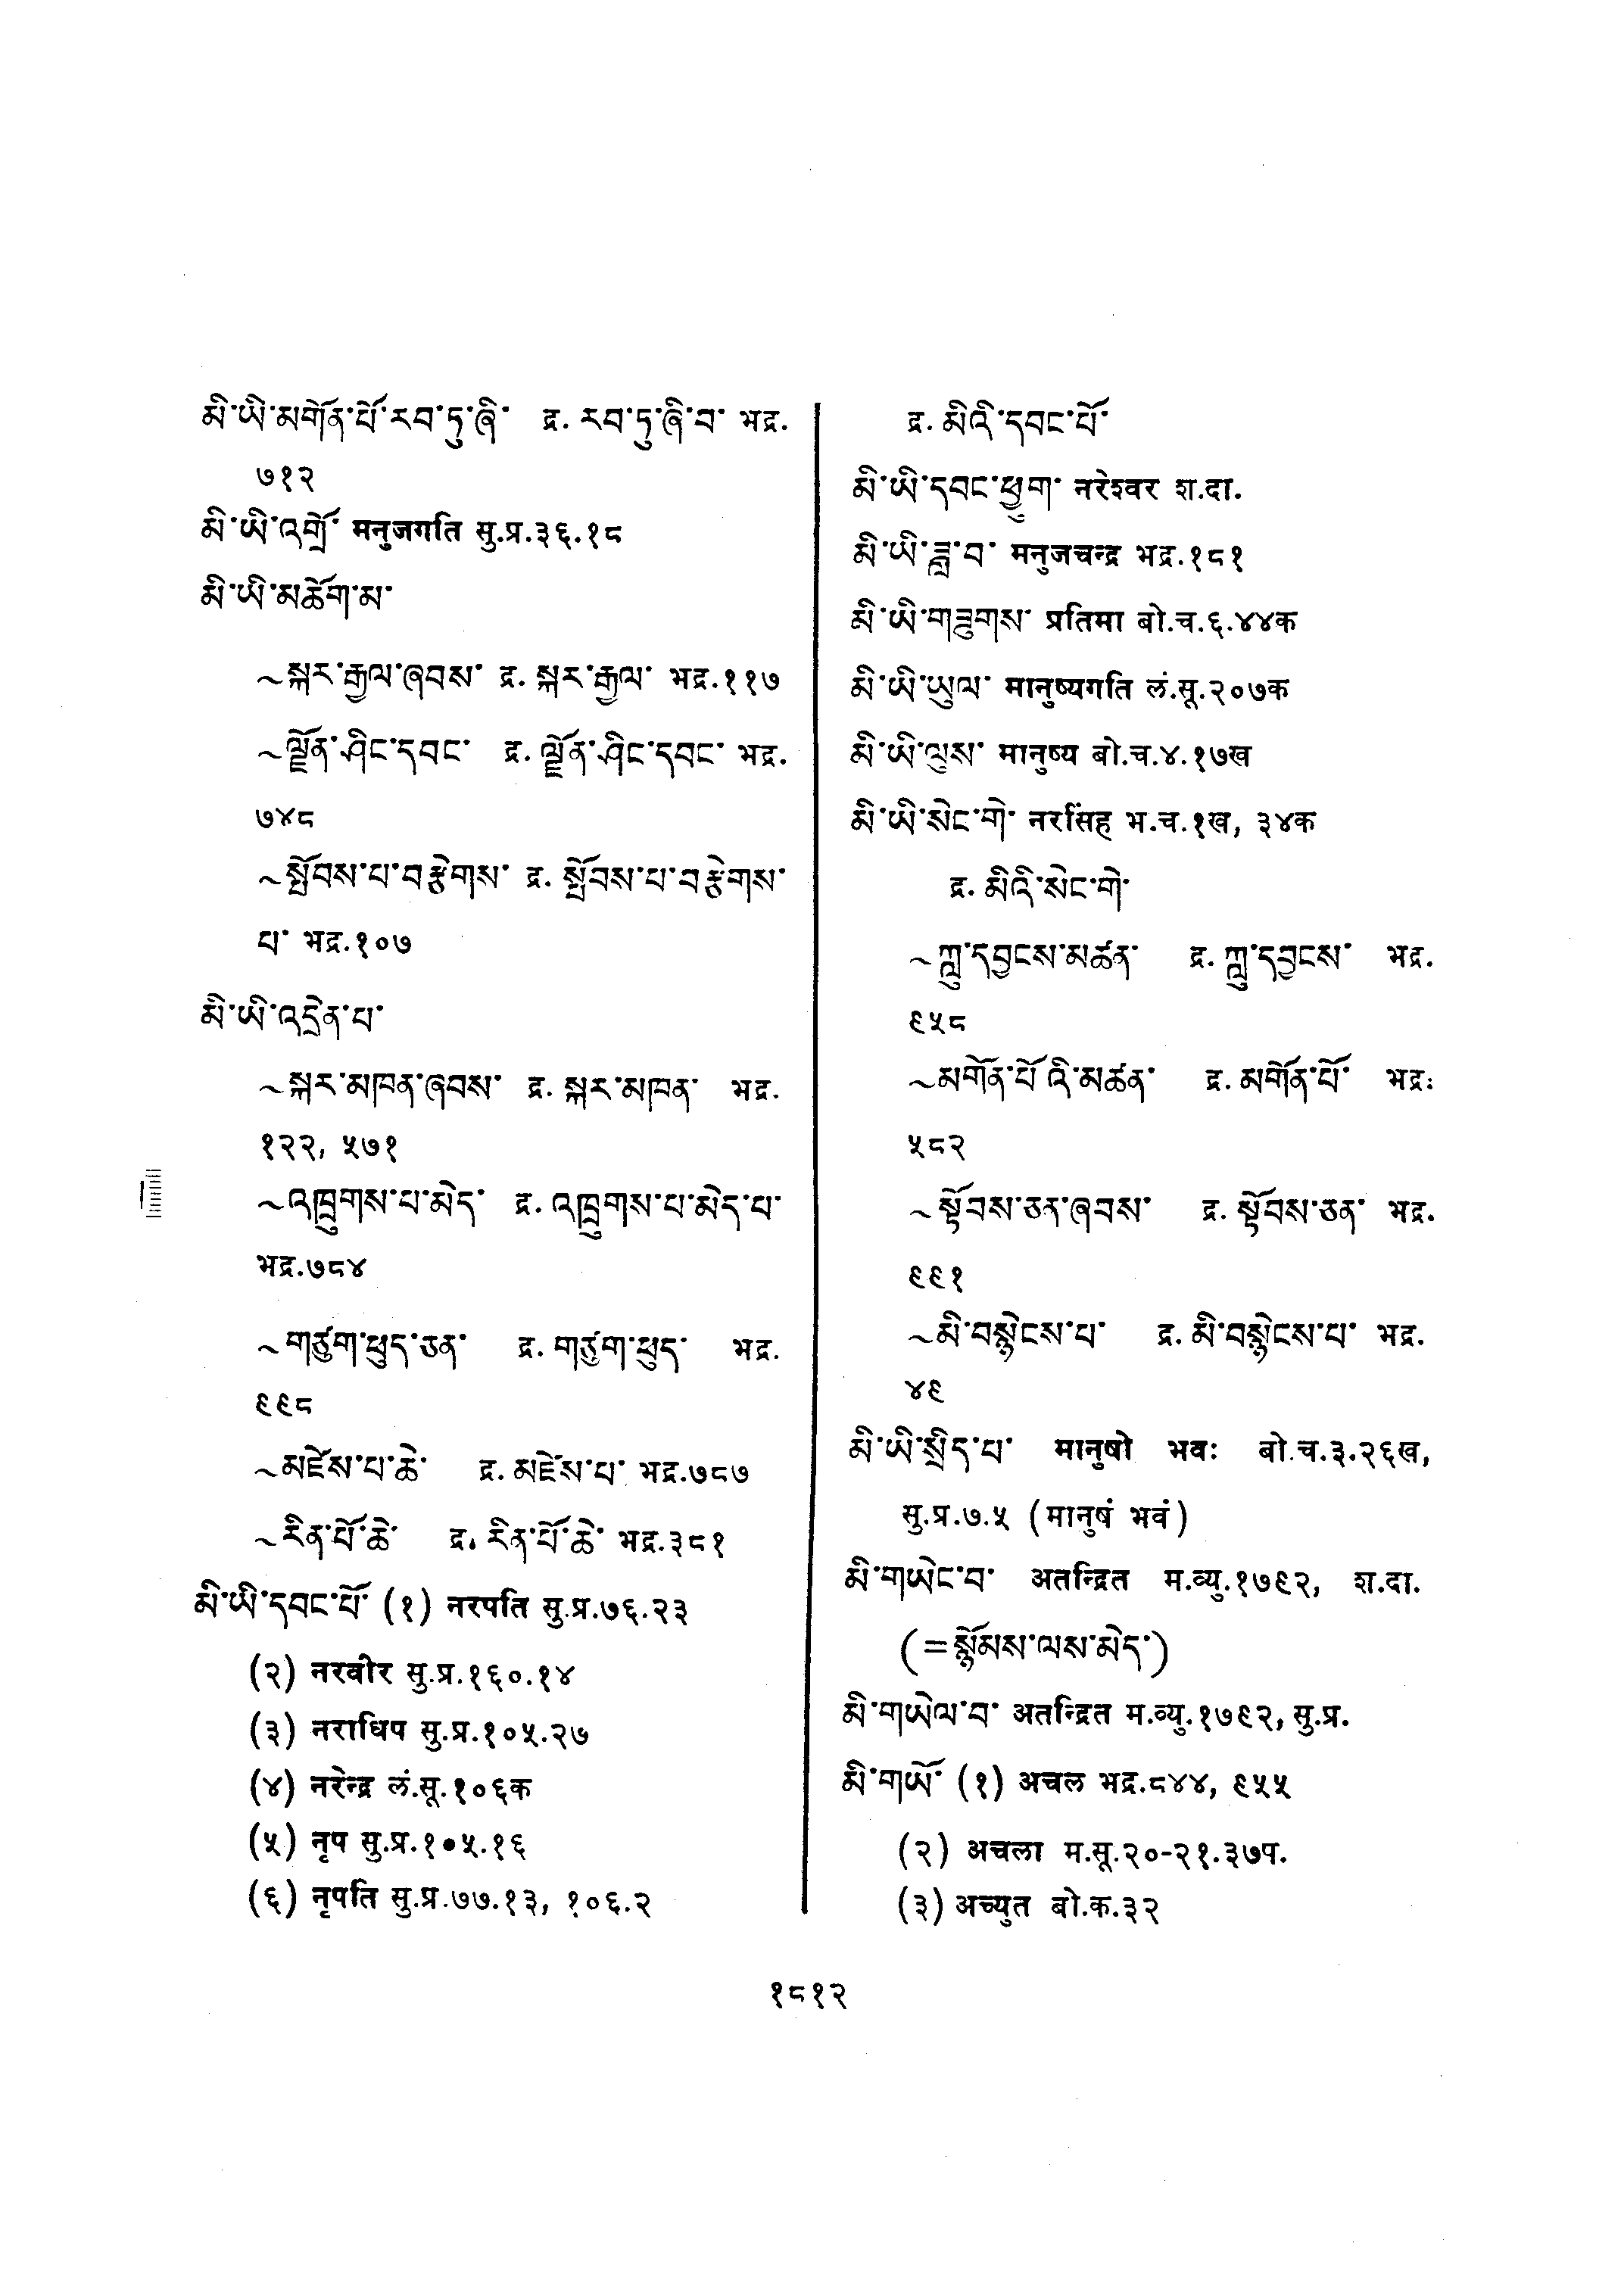 མི་ཡི་མགོན་པོ་རབ་ཏུ་ཞི་ द्र. རབ་ཏུ་ཞི་བ་ भद्र.
७१२
མི་ཡི་འགྲོ་ मनुजगति सु.प्र.३६.१८
མི་ཡི་མཆོག་མ་
~སྐར་རྒྱལ་ཞབས་ द्र. སྐར་རྒྱལ་ भद्र.११७
~ལྗོན་ཤིང་དབང་ द्र. ལྗོན་ཤིང་དབང་ भद्र.
७४८
~སྤོབས་པ་བརྩེགས་ द्र. སྤོབས་པ་བརྩེགས་
པ་ भद्र.१०७
མི་ཡི་འདྲེན་པ་
~སྐར་མཁན་ཞབས་ द्र. སྐར་མཁན་ भद्र.
१२२, ५७१
~འཁྲུགས་པ་མེད་ द्र. འཁྲུགས་པ་མེད་པ་
भद्र.७८४
~གཙུག་ཕུད་ཅན་ द्र. གཙུག་ཕུད་ भद्र.
९९८
~མཛེས་པ་ཆེ་ द्र. མཛེས་པ་ भद्र.७८७
~རིན་པོ་ཆེ་ द्र. རིན་པོ་ཆེ་ भद्र.३८१
མི་ཡི་དབང་པོ་ (१) नरपति सु.प्र.७६.२३
(२) नरवीर सु.प्र.१६०.१४
(३) नराधिप सु.प्र.१०५.२७
(४) नरेन्द्र लं.सू.१०६क
(५) नृप सु.प्र.१०५.१६
(६) नृपति सु.प्र.७७.१३, १०६.२
द्र. མིའི་དབང་པོ་
མི་ཡི་དབང་ཕྱུག་ नरेश्वर श.दा.
མི་ཡི་ཟླ་བ་ मनुजचन्द्र भद्र.१८१
མི་ཡི་གཟུགས་ प्रतिमा बो.च.६.४४क
མི་ཡི་ཡུལ་ मानुष्यगति लं.सू.२०७क
མི་ཡི་ལུས་ मानुष्य बो.च.४.१७ख
མི་ཡི་སེང་གེ་ नरसिंह भ.च.१ख, ३४क
द्र. མིའི་སེང་གེ་
~ཀླུ་དབྱངས་མཚན་ द्र. ཀླུ་དབྱངས་ भद्र.
९५८
~མགོན་པོ་འི་མཚན་ द्र. མགོན་པོ་ भद्र:
५८२
~སྟོབས་ཅན་ཞབས་ द्र. སྟོབས་ཅན་ भद्र.
९९१
~མི་བསྙེངས་པ་ द्र. མི་བསྙེངས་པ་ भद्र.
४९
མི་ཡི་སྲིད་པ་ मानुषो भवः बो.च.३.२६ख,
सु.प्र.७.५ (मानुषं भवं)
མི་གཡེང་བ་ अतन्द्रित म.व्यु.१७९२, श.दा.
(=སྙོམས་ལས་མེད་)
མི་གཡེལ་བ་ अतन्द्रित म.व्यु.१७९२, सु.प्र.
མི་གཡོ་ (१) अचल भद्र.८४४, ९५५
(२) अचला म.सू.२०-२१.३७प.
(३) अच्युत बो.क.३२
१८१२